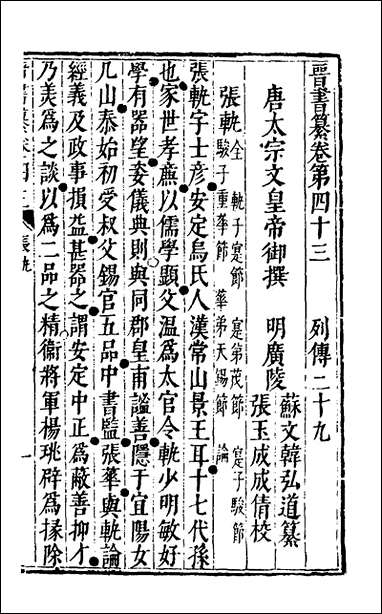 晉書纂卷第四十三　列傳二十九
唐太宗文皇帝御撰　明廣陵　蘇文韓弘道纂
張玉成成倩校
張軌全　軌子寔節　寔弟茂節　寔子駿節
駿子重華節　華弟天錫節　論
張軌字士彥安定烏氏人漢常山景王耳十七代孫
也家世孝廉以儒學顯父溫爲太官令軌少明敏好
學有器望姿儀典則與同郡皇甫謐善隱于宜陽女
几山泰始初受叔父錫官五品中書監張華與軌論
經義及政事損益甚器之謂安定中正爲蔽善抑才
乃美爲之談以爲二品之精衞將軍楊珧辟爲掾除
張軌
一